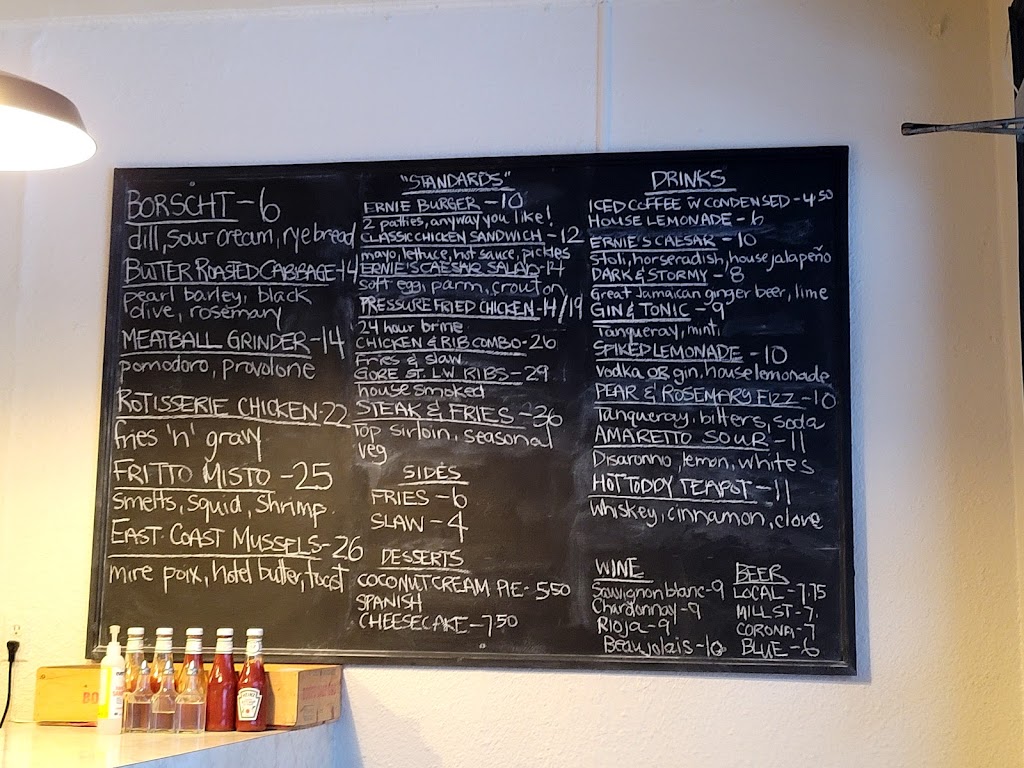 BORSCHT - 6
dill, sour cream, rye bread
BUTTER ROASTED CABBAGE - 14
pearl barley, black
olive, rosemary
MEATBALL GRINDER - 14
pomodoro, provolone
ROTISSERIE CHICKEN - 22
fries 'n' gravy
FRITTO MISTO - 25
smelts, squid, shrimp
EAST COAST MUSSELS - 26
mire poix, hotel butter, toast
"STANDARDS"
ERNIE BURGER - 10
2 patties, anyway you like!
CLASSIC CHICKEN SANDWICH - 12
mayo, lettuce, hot sauce, pickles
ERNIE'S CAESAR SALAD - 14
soft egg, parm, crouton
PRESSURE FRIED CHICKEN - 14/19
24 hour brine
CHICKEN & RIB COMBO - 26
fries & slaw
GORE ST. L.W RIBS - 29
house smoked
STEAK & FRIES - 36
top sirloin, seasonal
veg
SIDES
FRIES - 6
SLAW - 4
DESSERTS
COCONUT CREAM PIE - 5.50
SPANISH
CHEESECAKE - 7.50
DRINKS
ICED COFFEE W CONDENSED - 4.50
HOUSE LEMONADE - 6
ERNIE'S CAESAR - 10
Stoli, horseradish, house jalapeño
DARK & STORMY - 8
Great Jamaican ginger beer, lime
GIN & TONIC - 9
Tanqueray, mint
SPIKED LEMONADE - 10
vodka OR gin, house lemonade
PEAR & ROSEMARY FIZZ - 10
Tanqueray, bitters, soda
AMARETTO SOUR - 11
Disaronno, lemon, whites
HOT TODDY TEAPOT - 11
whiskey, cinnamon, clove
WINE
Sauvignon blanc - 9
Chardonnay - 9
Rioja - 9
Beaujolais - 10
BEER
LOCAL - 7.75
MILL ST - 7.
CORONA - 7
BLUE - 6
HEINZ